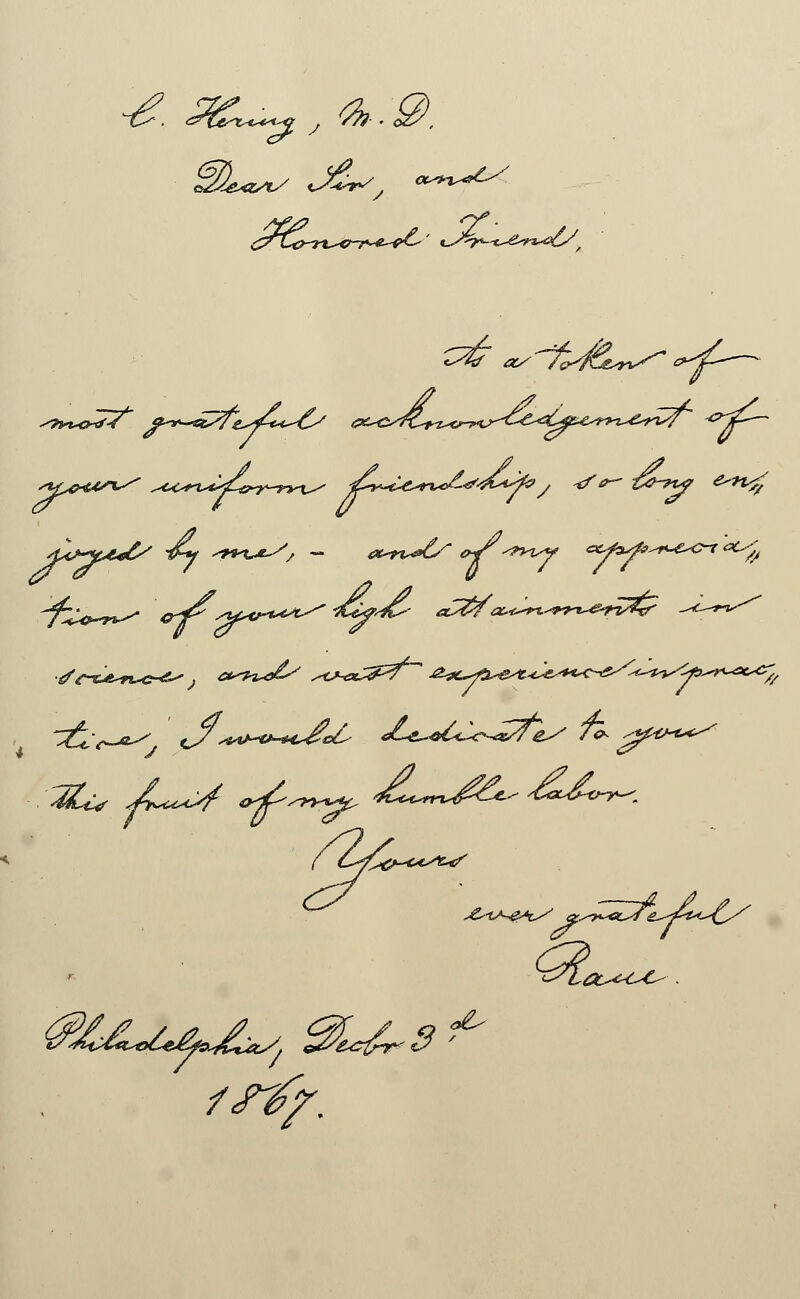 C. Hering, M. D.
Dear Sir, and
Honored Friend,
As a token of
most grateful acknowledgement of
your uniform friendship, so long en„
joyed by me, – and of my apprecia„
tion of your high attainments in
science, and vast experience in prac„
tice, I would dedicate to you
this fruit of my humble labor.
Yours
ever grateful
Raue.
Philadelphia, Decbr 3d
1867.